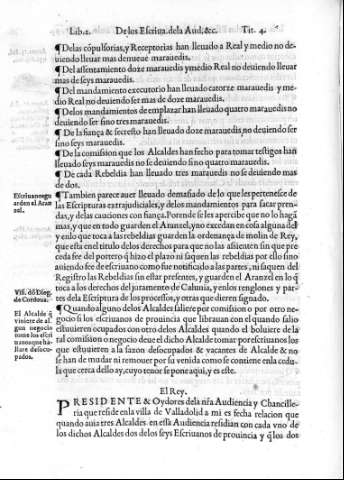 Lib. 2. De los Escriua. dela Aud, &c. Tit. 4.
¶ Delas cõpulsorias, y Receptorias han lleuado a Real y medio no de-
uiendo lleuar mas de nueue marauedis.
¶ Del assentamiento doze marauedis y medio Real no deuiendo lleuar
mas de seys marauedis.
¶ Del mandamiento executorio han lleuado catorze marauedis y me-
dio Real no deuiendo ser mas de doze marauedis.
¶ Delos mandamientos de emplazar han lleuado quatro marauedis no
deuiendo ser sino tres marauedis.
¶ De la fiança & secresto han lleuado doze marauedis, no deuiendo ser
sino seys marauedis.
¶ De la comission que los Alcaldes han fecho para tomar testigos hañ
lleuado seys marauedis no se deuiendo sino quatro marauedis.
¶ De cada Rebeldia han lleuado tres marauedis no se deuiendo mas
de dos.
¶ Tambien parece auer lleuado demasiado de lo que les pertenesce de
las Escripturas extrajudiciales, y delos mandamientos para sacar pren-
das, y delas cauciones con fiança. Porende se les apercibe que no lo hagã
mas, y que en todo guarden el Aranzel, y no excedan en cosa alguna del
y enlo que toca a las rebeldias guarden la ordenança de molin de Rey,
que esta enel titulo delos derechos para que no las assienten sin que pre
ceda fee del portero q̃ hizo el plazo ni saquen las rebeldias por ello sino
auiendo fee de escriuano como fue notificado a las partes, ni saquen del
Registro las Rebeldias sin estar presentes, y guarden el Aranzel en lo q̃
toca a los derechos del juramento de Calumia, y enlos renglones y par-
tes dela Escriptura de los processos, y otras que dieren signado.
¶ Quando alguno delos Alcaldes saliere por comission o por otro ne-
gocio si los escriuanos de prouincia que librauan con el quando salio
estuuieren ocupados con otro delos Alcaldes quando el boluiere de la
tal comission o negocio deue el dicho Alcalde tomar por escriuanos los
que estuuieren a la sazon desocupados & vacantes de Alcalde & no
se han de mudar ni remouer por su venida como se contiene en la cedu-
la que cerca dello ay, cuyo tenor se pone aqui, y es este.
Escriuanos gu
arden el Aran
zel.
Vis. dõ Dieg.
de Cordoua.
El Alcalde q̃
viniere de al
gun negocio
tome los escri
uanos que ha-
llare desocu-
pados.
El Rey.
PRESIDENTE & Oydores dela ñra Audiencia y Chancille-
ria que reside en la villa de Valladolid a mi es fecha relacion que
quando auia tres Alcaldes en essa Audiencia residian con cada vno de
los dichos Alcaldes dos delos seys Escriuanos de prouincia y q̃ los dos